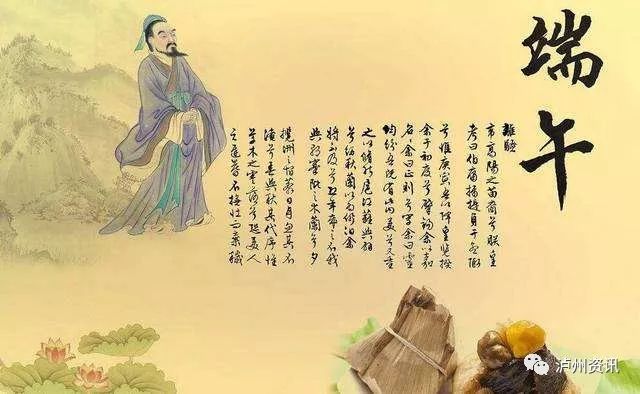 端午
離騷
帝高陽之苗裔兮朕皇
考曰伯庸攝提貞于孟陬
兮惟庚寅吾以降皇覽揆
余于初度兮肇錫余以嘉
名余曰正則兮字余曰靈
均紛吾既有此內美兮又重
之以脩能扈江蘺與辟
兮紉秋蘭以為佩汩余
將不及兮恐年歲之不我
與朝搴阰之木蘭兮夕
攬洲之宿莽日月忽其不
淹兮春與秋其代序惟
草木之零落兮恐美人
之遲暮不撫壯而棄穢
泸州资讯